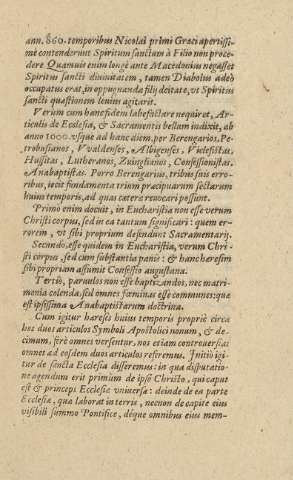 ann. 860. temporibus Nicolai primi Graci apertissi-
mè contenderunt Spiritum sanctum à Filio non proce-
dere Quamuis enim longè ante Macedonius negasset
Spiritus sancti diuinitatem, tamen Diabolus adeò
occupatus erat, in oppugnanda filij deitate, vt Spiritus
sancti quæstionem leuius agitarit.
Verum cum hanc fidem labefactare nequiret, Ar-
ticulis de Ecclesia, & Sacramentis bellum indixit, ab
anno 1000. vsque ad hanc diem, per Berengarios, Pe-
trobusianos, VValdenses, Albigenses, Vviclefistas,
Hussitas, Lutheranos, Zuinglianos, Confessionistas,
Anabaptistas. Porro Berengarius, tribus suis erro-
ribus, iecit fundamenta trium præcipuarum sectarum
huius temporis, ad quas cateræ reuocari possunt.
Primò enim docuit, in Eucharistia non esse verum
Christi corpus, sed in ea tantum significari: quem er-
rorem, vt sibi proprium defendunt Sacramentarij.
Secundo, esse quidem in Eucharistia, verum Chri-
sti corpus, sed cum substantia panis: & hanc hæresim
sibi propriam assumit Confessio augustana.
Tertiò, paruulos non esse baptizandos, nec matri-
monia colenda, sed omnes fæminas esse communes: quæ
est ipsissima Anabaptistarum doctrina.
Cum igitur hæreses huius temporis propriè circa
hos duos articulos Symboli Apostolici nonum, & de-
cimum, ferè omnes versentur, nos etiam controuersias
omnes ad eosdem duos articulos referemus. Initiò igi-
tur de sancta Ecclesia disseremus: in qua disputatio-
ne agendum erit primum de ipso Christo, qui caput
est & princeps Ecclesiæ vniuersæ: deinde de ea parte
Ecclesiæ, quæ laborat in terris, necnon de capite eius
visibili summo Pontifice, déque omnibus eius mem-